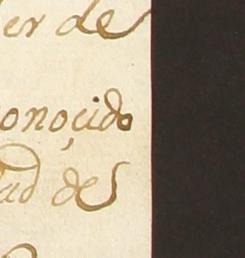 er de
onoçido
ad de